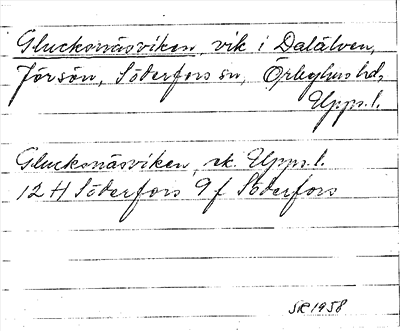 Glucksnäsviken, vik i Dalälven,
Jörsön, Söderfors sn, Örbyhus hd,
Upps. l.
Glucksnäsviken, ek. Upps. l.
12 H Söderfors 9 f Söderfors
SR 1958